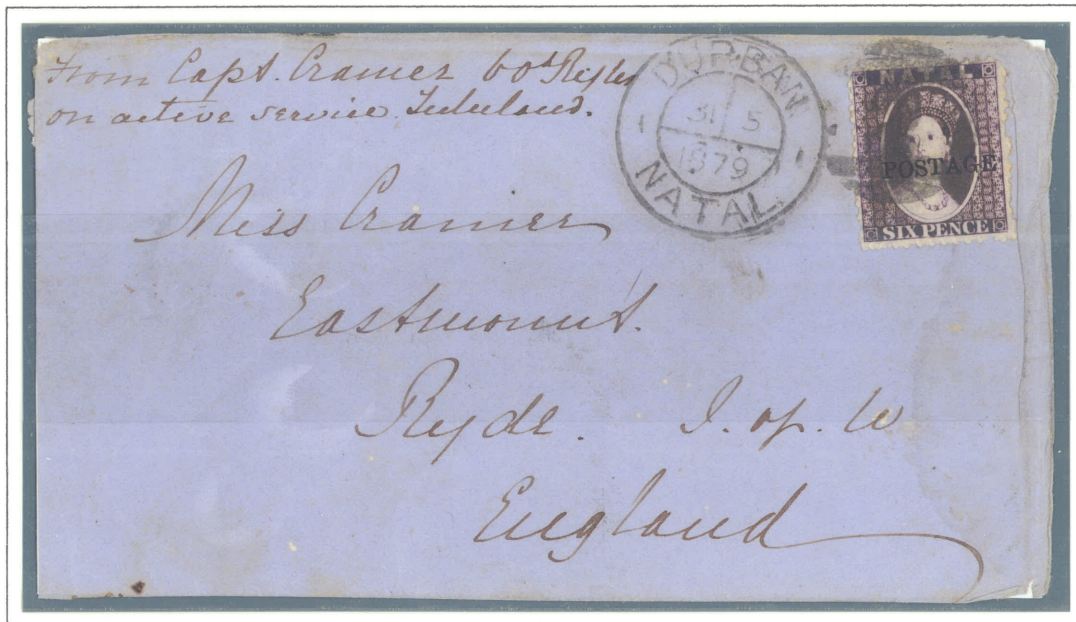 From Capt. Cramer 60th Rifles
on active service Zululand.
DURBAN
31 5
1879
NATAL
NATAL
POSTAGE
SIX PENCE
Miss Cramer
Eastmount.
Ryde. I. of. W
England